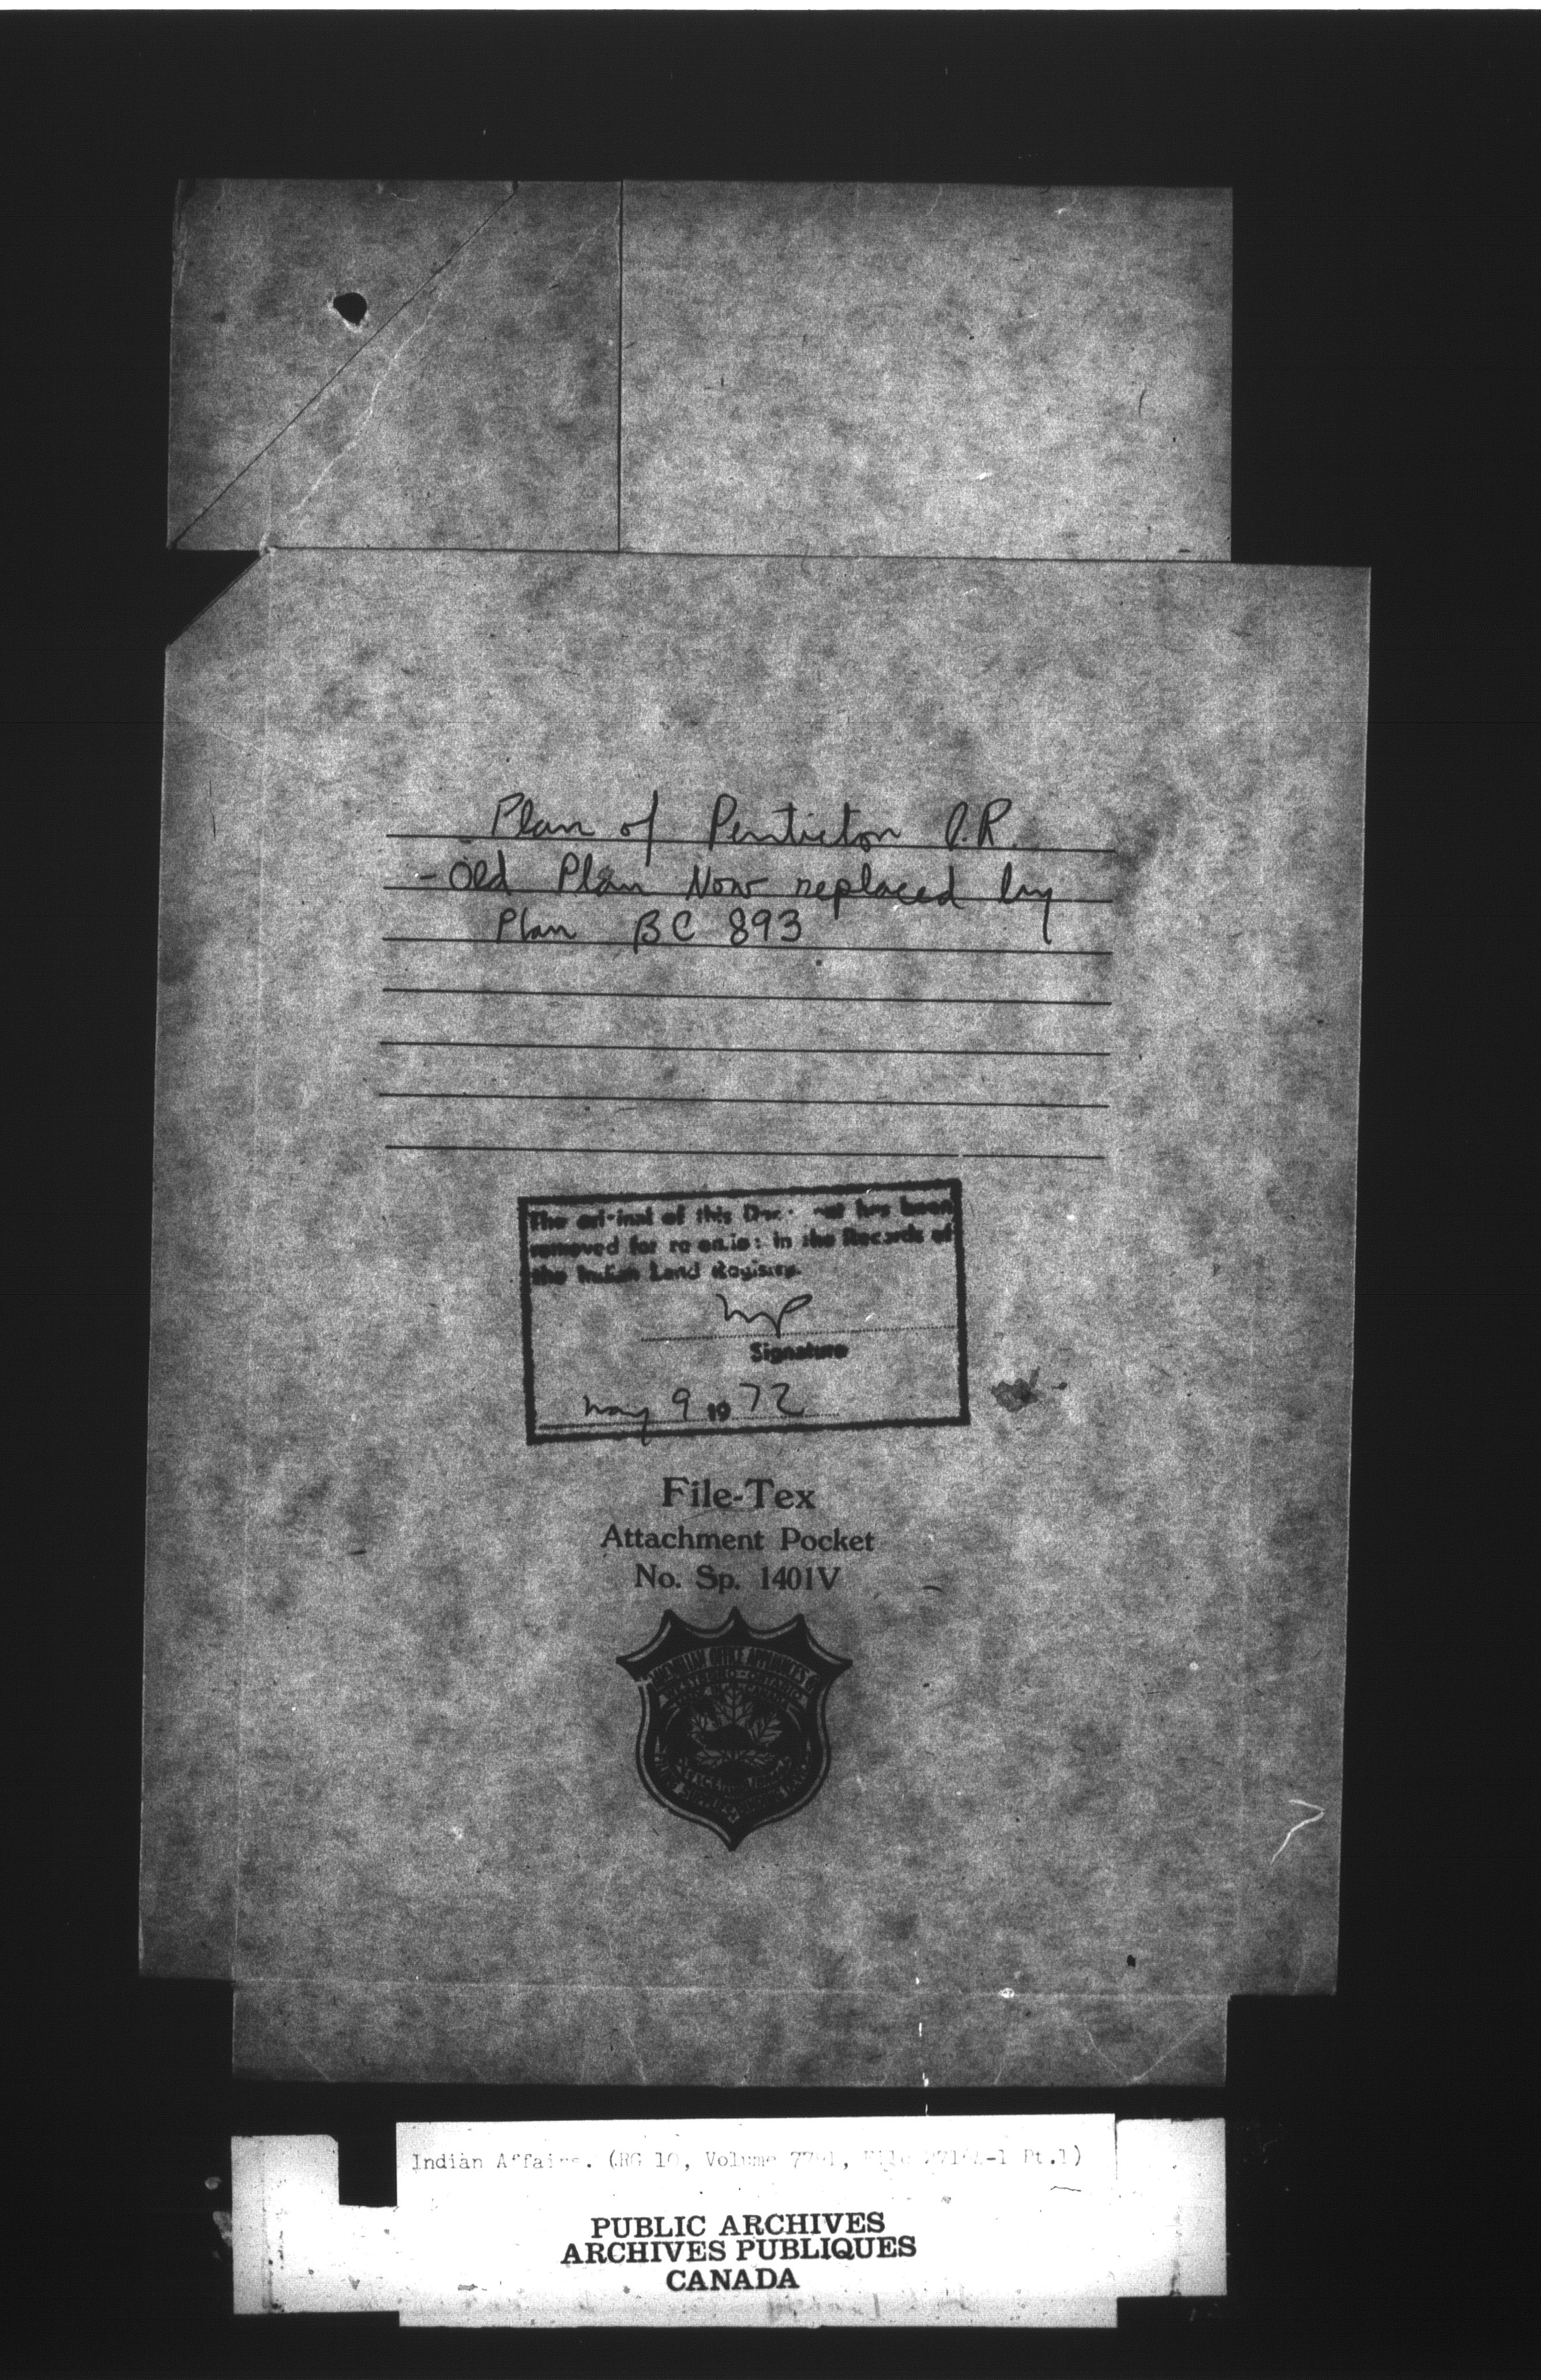 Plan of Penticton I.R.
- Old Plan Now replaced by
Plan BC 893
The original of this Document has been
removed for retention in the Records of
the Indian Land Registry.
Signature
May 9 1972
File-Tex
Attachment Pocket
No. Sp. 1401V
OFFICE APPLIANCES
WESTBORO - ONTARIO
Indian Affairs. (RG 10, Volume
PUBLIC ARCHIVES
ARCHIVES PUBLIQUES
CANADA